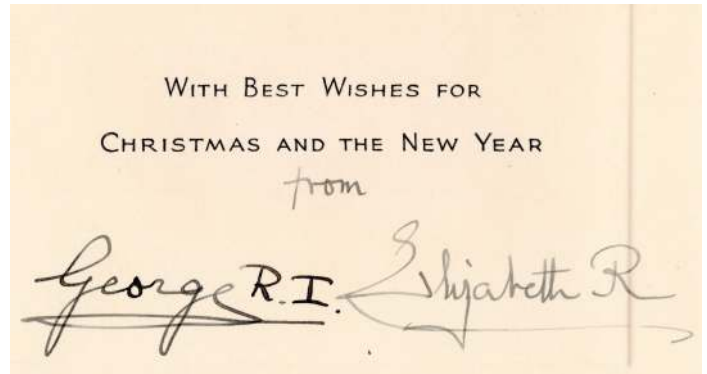 With Best Wishes for
Christmas and the New Year
from
George R.I. Elizabeth R